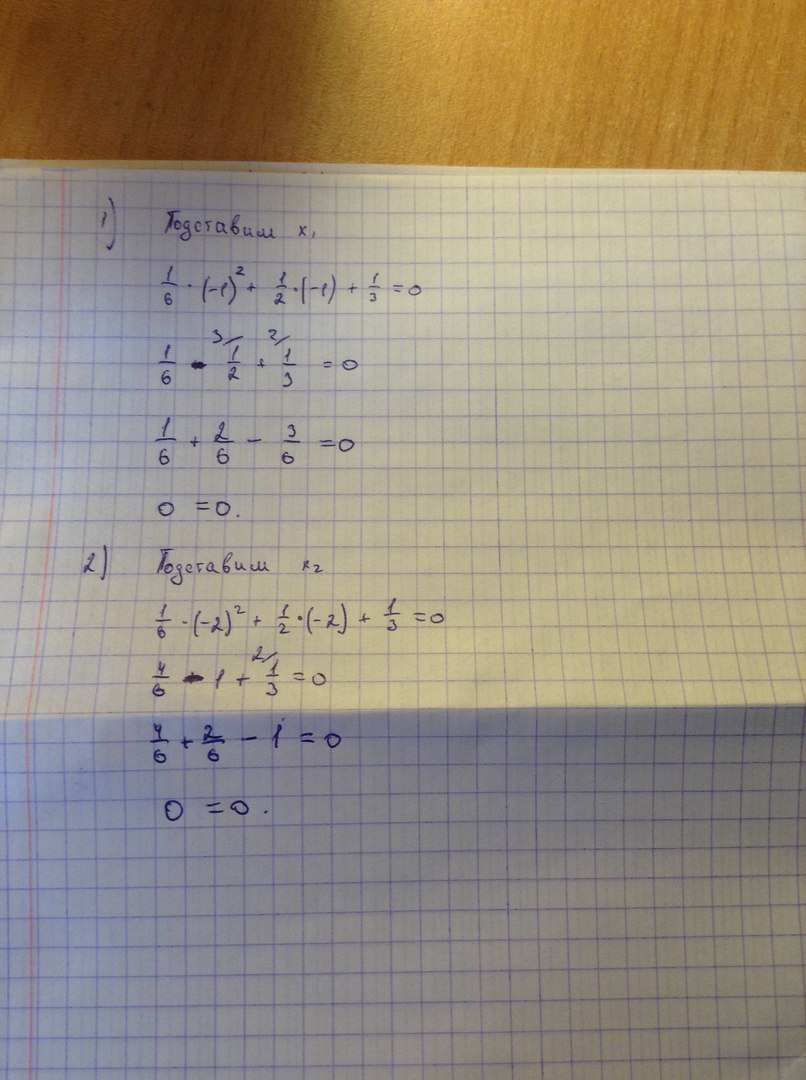 1) Подставим x₁
1/6 · (-1)² + 1/2 · (-1) + 1/3 = 0
1/6 - ³⁄ 1/2 + ²⁄ 1/3 = 0
1/6 + 2/6 - 3/6 = 0
0 = 0.
2) Подставим x₂
1/6 · (-2)² + 1/2 · (-2) + 1/3 = 0
4/6 - 1 + ²⁄ 1/3 = 0
4/6 + 2/6 - 1 = 0
0 = 0.